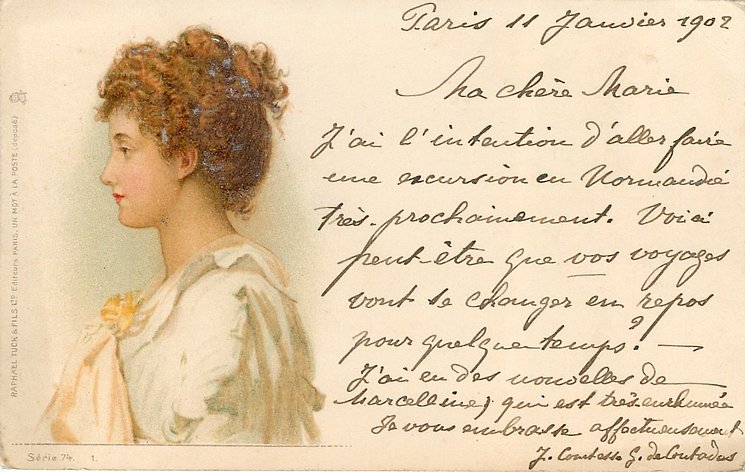 Paris 11 Janvier 1902
Ma chère Marie
J'ai l'intention d'aller faire
une excursion en Normandie
très-prochainement. Voici
peut-être que vos voyages
vont se changer en repos
pour quelque temps? —
J'ai eu des nouvelles de
Marcelline, qui est très enrhumée
Je vous embrasse affectueusement
J. Comtesse G. de Contades
RAPHAEL TUCK & FILS LTD Editeurs PARIS. UN MOT À LA POSTE (déposé)
Série 74. 1.